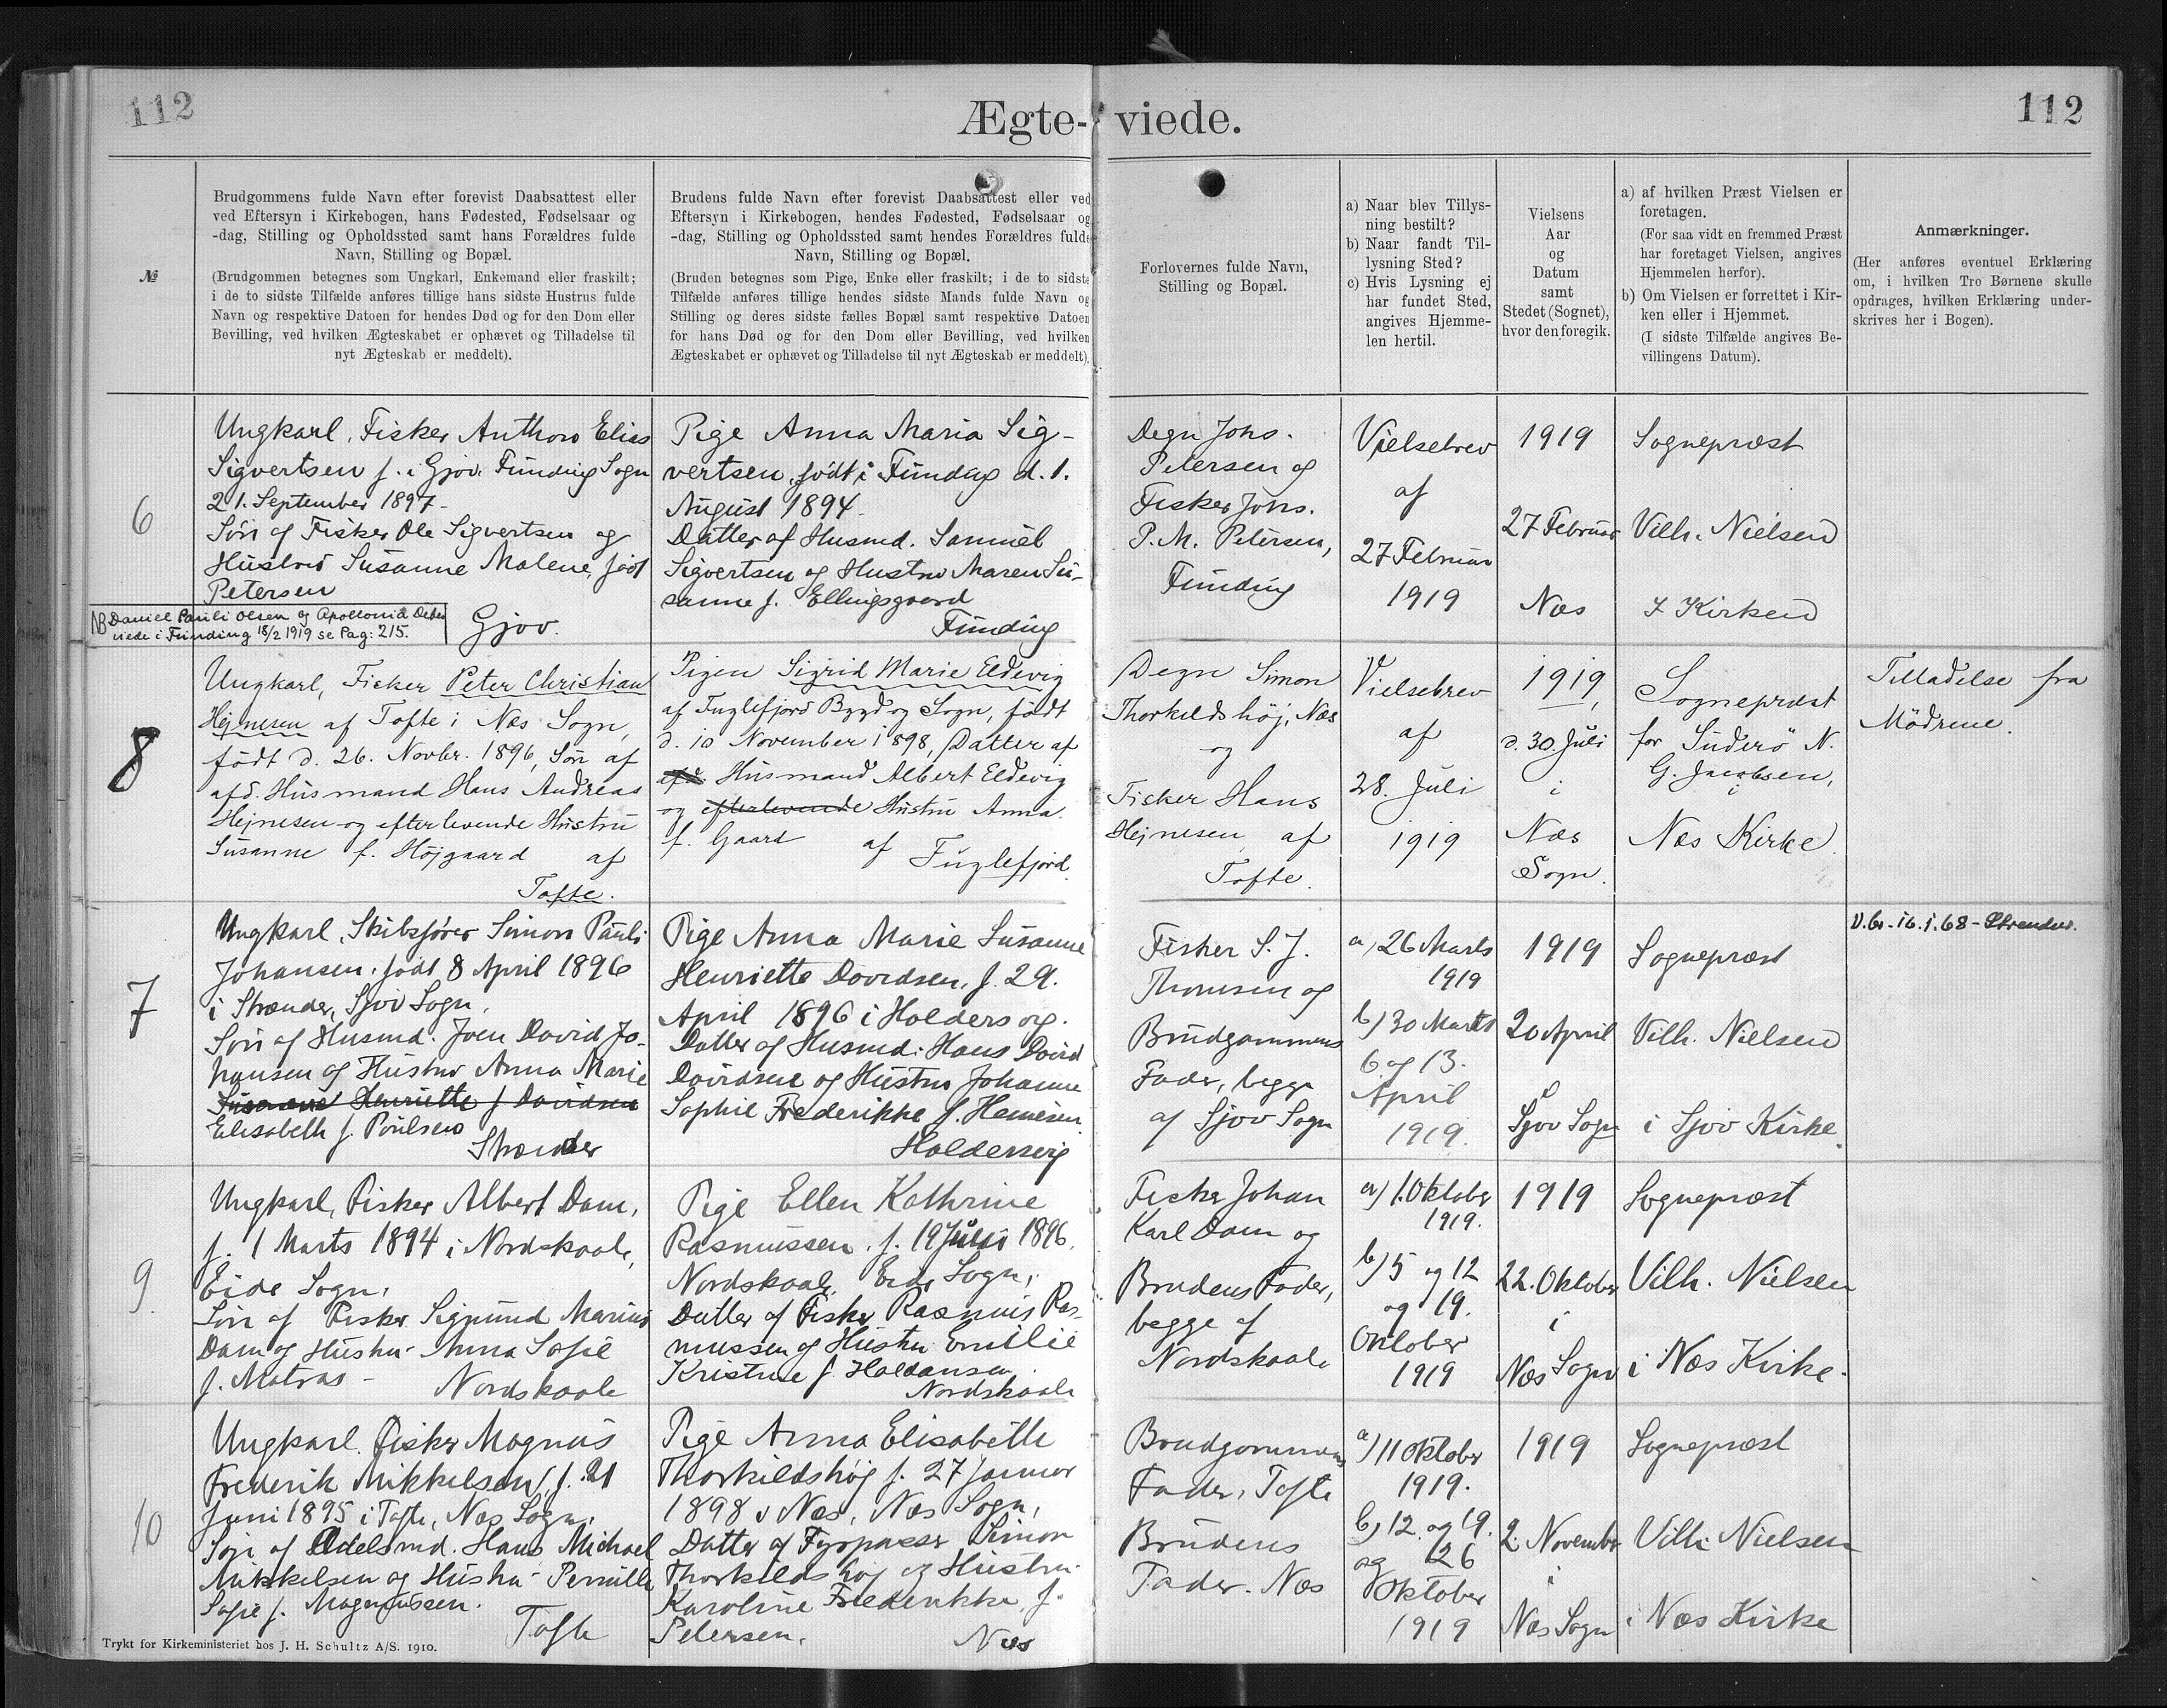 112
Ægte-viede.
112
№
Brudgommens fulde Navn efter forevist Daabsattest eller
ved Eftersyn i Kirkebogen, hans Fødested, Fødselsaar og
-dag, Stilling og Opholdssted samt hans Forældres fulde
Navn, Stilling og Bopæl.
(Brudgommen betegnes som Ungkarl, Enkemand eller fraskilt;
i de to sidste Tilfælde anføres tillige hans sidste Hustrus fulde
Navn og respektive Datoen for hendes Død og for den Dom eller
Bevilling, ved hvilken Ægteskabet er ophævet og Tilladelse til
nyt Ægteskab er meddelt).
Brudens fulde Navn efter forevist Daabsattest eller ved
Eftersyn i Kirkebogen, hendes Fødested, Fødselsaar og
-dag, Stilling og Opholdssted samt hendes Forældres fulde
Navn, Stilling og Bopæl.
(Bruden betegnes som Pige, Enke eller fraskilt; i de to sidste
Tilfælde anføres tillige hendes sidste Mands fulde Navn og
Stilling og deres sidste fælles Bopæl samt respektive Datoen
for hans Død og for den Dom eller Bevilling, ved hvilken
Ægteskabet er ophævet og Tilladelse til nyt Ægteskab er meddelt).
Forlovernes fulde Navn,
Stilling og Bopæl.
a) Naar blev Tillys-
ning bestilt?
b) Naar fandt Til-
lysning Sted?
c) Hvis Lysning ej
har fundet Sted,
angives Hjemme-
len hertil.
Vielsens
Aar
og
Datum
samt
Stedet (Sognet),
hvor den foregik.
a) af hvilken Præst Vielsen er
foretagen.
(For saa vidt en fremmed Præst
har foretaget Vielsen, angives
Hjemmelen herfor).
b) Om Vielsen er forrettet i Kir-
ken eller i Hjemmet.
(I sidste Tilfælde angives Be-
villingens Datum).
Anmærkninger.
(Her anføres eventuel Erklæring
om, i hvilken Tro Børnene skulle
opdrages, hvilken Erklæring under-
skrives her i Bogen).
6
Ungkarl, Fisker Anthon Elias
Sigvertsen f. i Gjov. Funding Sogn
21. September 1897.
Søn af Fisker Ole Sigvertsen og
Hustru Susanne Malene, født
Petersen
Gjov.
NB Daniel Pauli Olsen og Apollonia
viede i Funding 18/2 1919 se Pag: 215.
Pige Anna Maria Sig-
vertsen, født i Funding d. 1.
August 1894.
Datter af Husmd. Samuel
Sigvertsen og Hustru Maren Su-
sanne f. Ellingsgaard
Funding
Degn Johs.
Petersen og
Fisker Johs.
P. M. Petersen,
Funding
Vielsebrev
af
27 Februar
1919
1919
27 Februar
Næs
Sognepræst
Vilh. Nielsen
I Kirken
8
Ungkarl, Fisker Peter Christian
Hejnesen af Tofte i Næs Sogn,
født d. 26. Novbr. 1896, Søn af
afd. Husmand Hans Andreas
Hejnesen og efterlevende Hustru
Susanne f. Højgaard af
Tofte.
Pigen Sigrid Marie Eldevig
af Fuglefjord Bygd og Sogn, født
d. 10 November 1898, Datter af
afd. Husmand Albert Eldevig
og efterlevende Hustru Anna
f. Gaard af Fuglefjord.
Degn Simon
Thorkildshöj, Næs
og
Fisker Hans
Hejnesen af
Tofte.
Vielsebrev
af
28. Juli
1919
1919,
d. 30. Juli
i
Næs
Sogn.
Sognepræst
for Suderö N.
G. Jacobsen,
i
Næs Kirke.
Tilladelse fra
Mödrene.
7
Ungkarl, Skibsfører Simon Pauli
Johansen, født 8 April 1896
i Strænder, Sjov Sogn.
Søn af Husmd. Joen David Jo-
hansen og Hustru Anna Marie
Susanne Henriette f. Davidsen
Elisabeth f. Poulsen
Strænder
Pige Anna Marie Susanne
Henriette Davidsen, f. 29.
April 1896 i Haldersvig.
Datter af Husmd. Hans David
Davidsen og Hustru Johanne
Sophie Frederikke f. Heinesen
Haldersvig
Fisker S. J.
Thomsen og
Brudgommens
Fader, begge
af Sjov Sogn
a) 26 Marts
1919
b) 30 Marts
6. og 13.
April
1919.
1919
20 April
i
Sjov Sogn
Sognepræst
Vilh. Nielsen
i Sjov Kirke.
V.br. 16.1.68 - Strender.
9
Ungkarl, Fisker Albert Dam,
f. 1 Marts 1894 i Nordskaale,
Eide Sogn,
Søn af Fisker Sigmund Marius
Dam og Hustru Anna Sofie
f. Matras - Nordskaale
Pige Ellen Kathrine
Rasmussen. f. 19 Juli 1896,
Nordskaale, Eide Sogn,
Datter af Fisker Rasmus Ras-
mussen og Hustru Emilie
Kristine f. Haldansen.
Nordskaale
Fisker Johan
Karl Dam og
Brudens Fader,
begge af
Nordskaale
a) 1. Oktober
1919.
b) 5 og 12
og 19.
Oktober
1919
1919
22. Oktober
i
Næs Sogn
Sognepræst
Vilh. Nielsen
i Næs Kirke.
10
Ungkarl. Fisker Magnus
Frederik Mikkelsen, f. 21
Juni 1895 i Tofte, Næs Sogn,
Søn af Odelsmd. Hans Michael
Mikkelsen og Hustru Pernille
Sofie f. Magnussen.
Tofte
Pige Anna Elisabeth
Thorkildshøj f. 27 Januar
1898 i Næs, Næs Sogn,
Datter af Fyrpasser Simon
Thorkildshøj og Hustru
Karoline Frederikke, f.
Petersen.
Næs
Brudgommens
Fader, Tofte
Brudens
Fader. Næs
a) 11 Oktober
1919.
b) 12. og 19.
og 26
Oktober
1919
1919
2. November
i
Næs Sogn
Sognepræst
Vilh. Nielsen
i Næs Kirke
Trykt for Kirkeministeriet hos J. H. Schultz A/S. 1910.